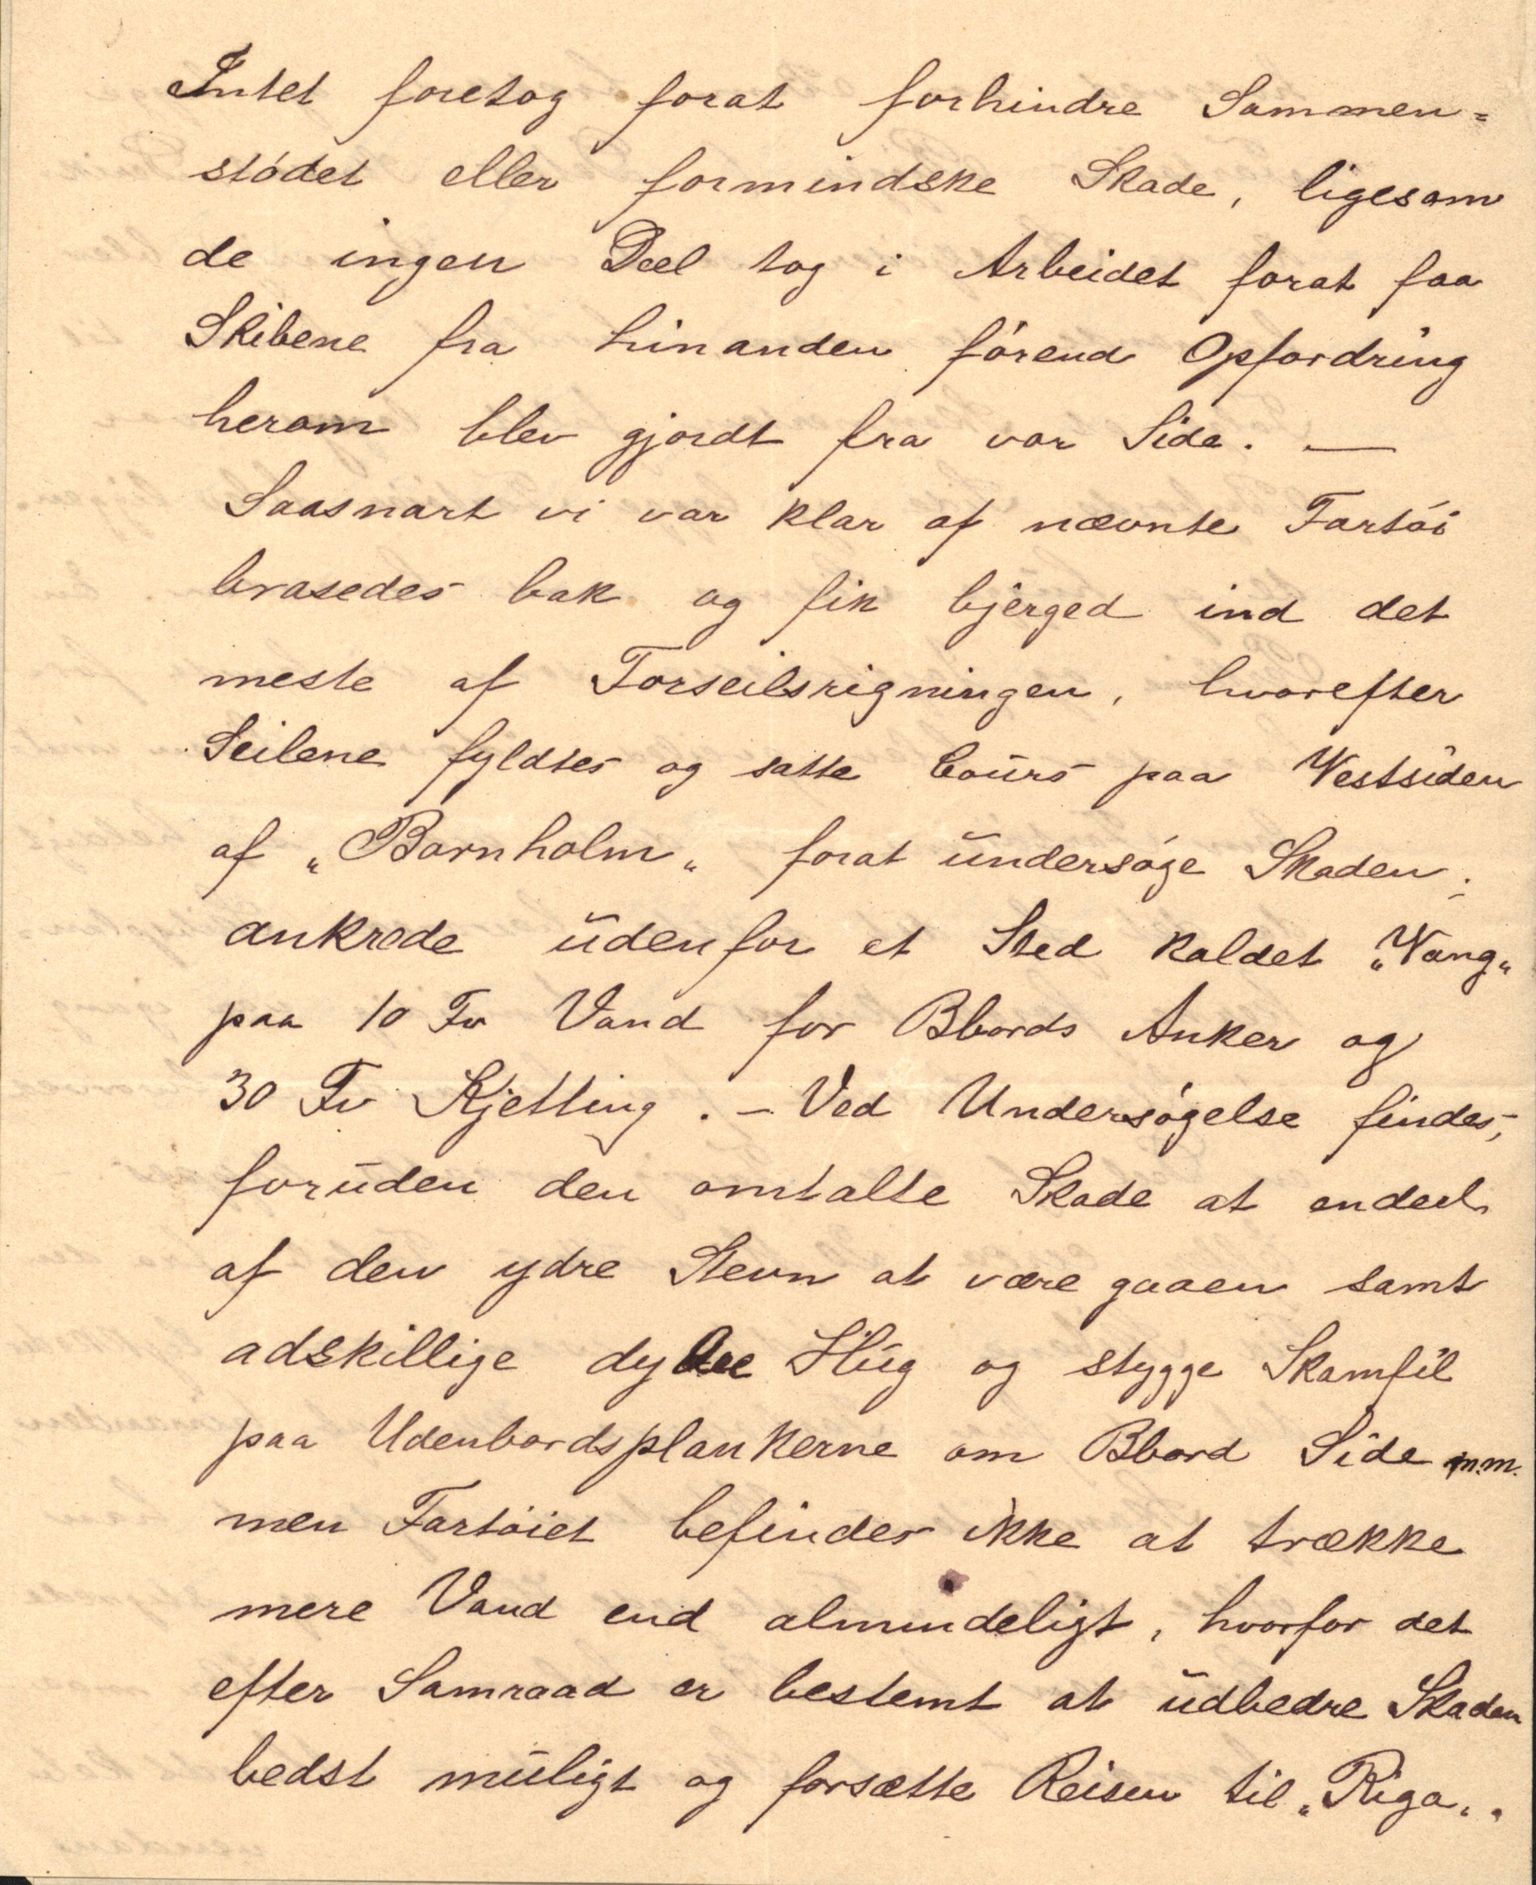 Intet foretog forat forhindre Sammen=
stödet eller formindske Skade, ligesom
de ingen Deel tog i Arbeidet forat faa
Skibene fra hinanden förend Opfordring
herom blev gjordt fra vor Side. —
Saasnart vi var klar af nævnte Fartöi
brasedes bak og fik bjerged ind det
meste af Forseilsrigningen, hvorefter
Seilene fyldtes og satte Cours paa Westsiden
af „Bornholm„ forat undersöge Skaden;
ankrede udenfor et Sted kaldet „Wang„
paa 10 Fv Vand for Bbords Anker og
30 Fv Kjetting. – Ved Undersögelse findes,
foruden den omtalte Skade at endeel
af den ydre Stevn at være gaaen samt
adskillige dybe Hug og stygge Skamfil
paa Udenbordsplankerne om Bbord Side m.m.
men Fartöiet befindes ikke at trække
mere Vand end almindeligt, hvorfor det
efter Samraad er bestemt at udbedre Skaden
bedst muligt og forsætte Reisen til „Riga„.